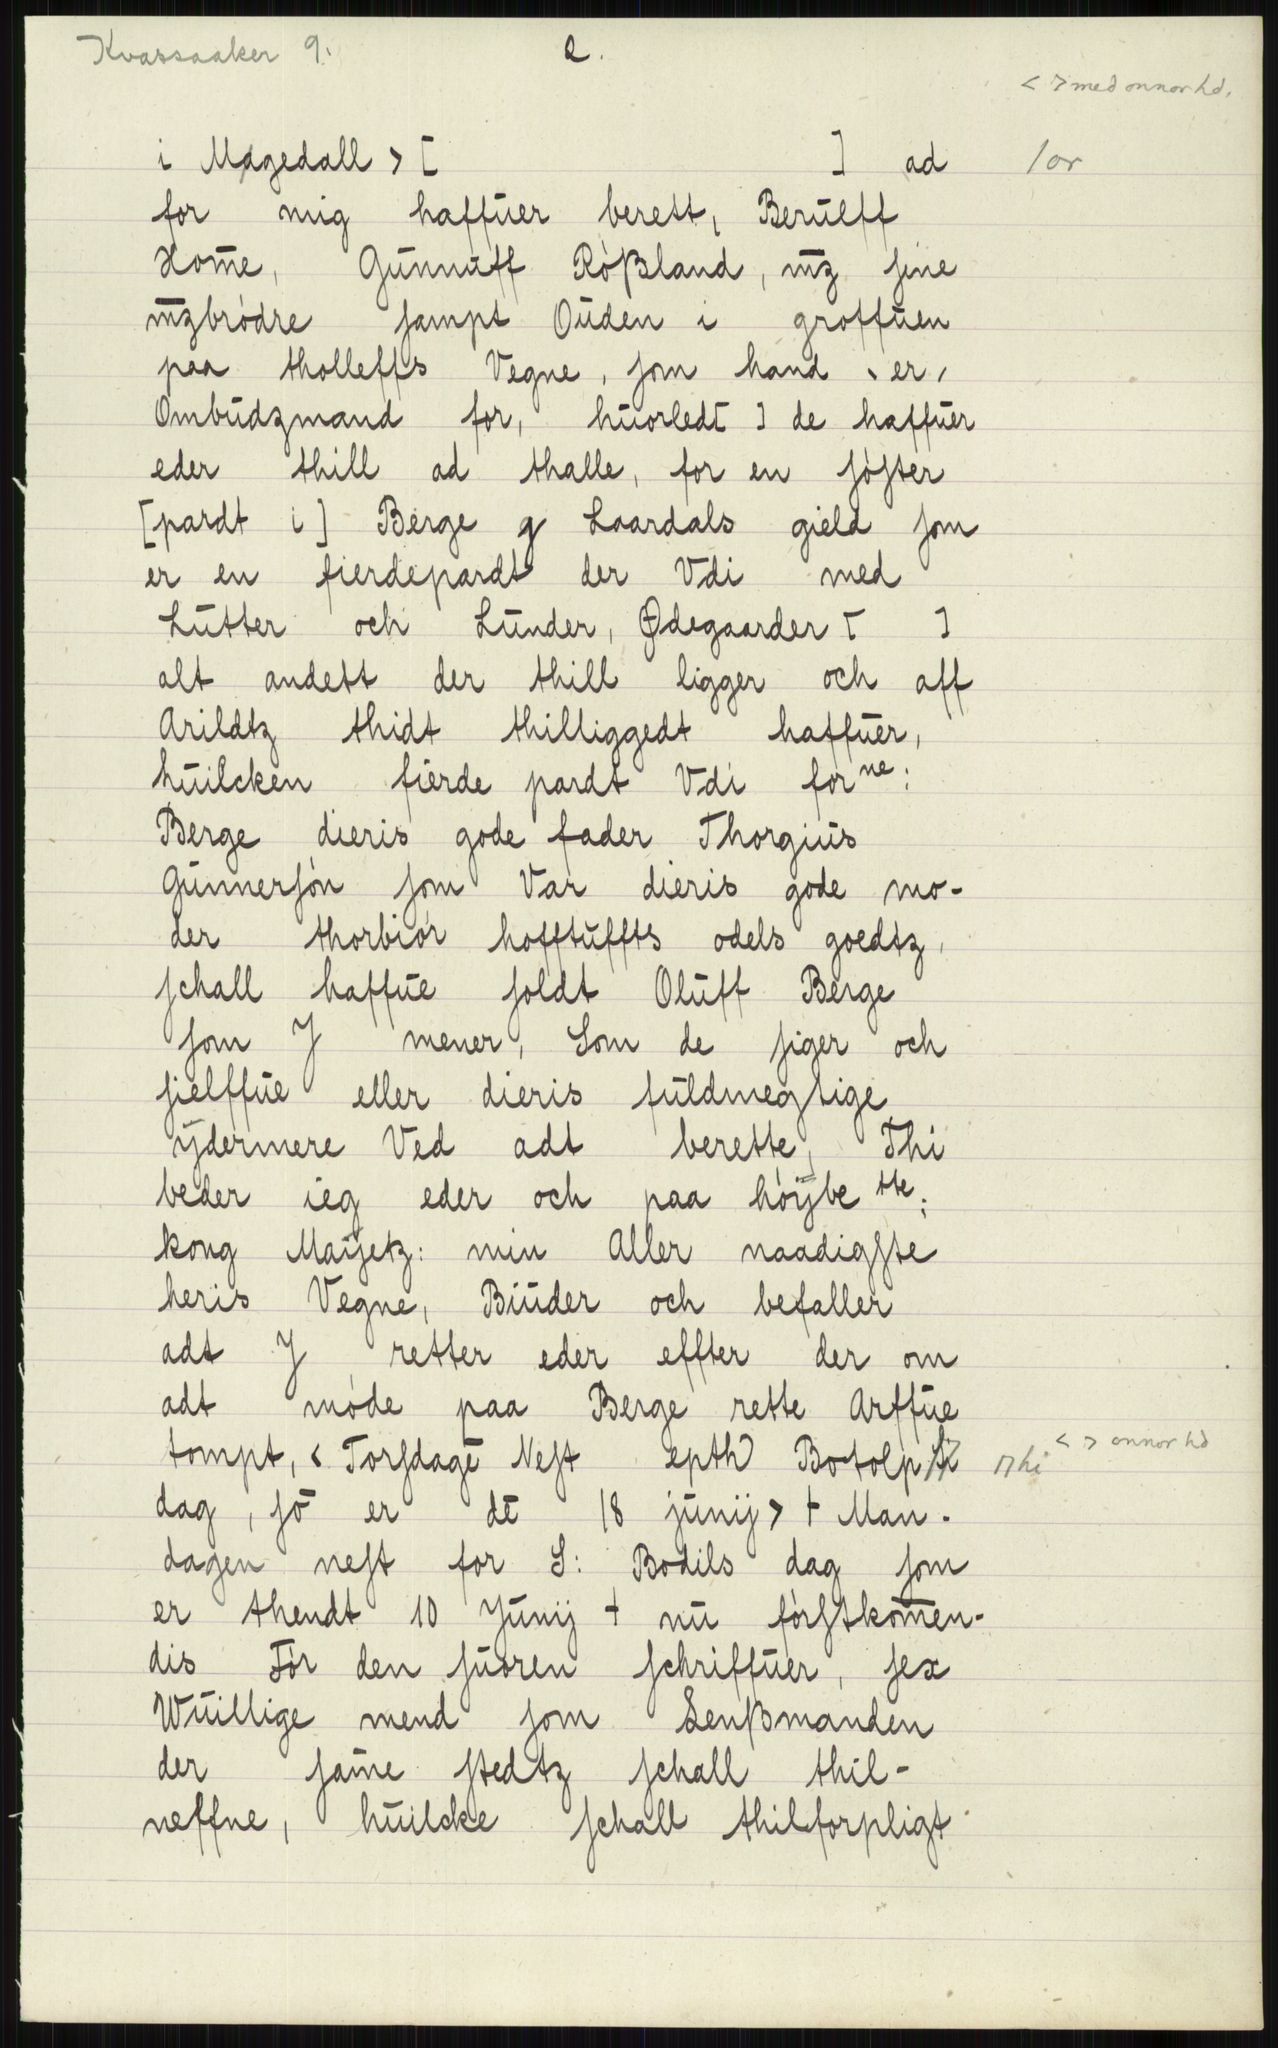 Kvassaaker 9.
2.
< > med onnor hd.
i Magedall > [ ] ad /or
for mig haffuer berett, Berulff
Home, Gunnuff Rößland, mz sine
mzbrödre sampt Ouden i groffuen
paa tholleffs Vegne, som hand ‵er′
Ombudzmand for, huorled[ ] de haffuer
eder thill ad thalle, for en söster
[pardt i] Berge y Laardals gield som
er en fierdepardt der Vdi med
Lutter och Lunder, Ødegaarder [ ]
alt andett der thill ligger och aff
Arildtz thidt thilliggedt haffuer,
huilcken fierde pardt Vdi forne:
Berge dieris gode fader Thorgius
Gunnersön som Var dieris gode mo-
der thorbiör hofftuffts odels goedtz,
schall haffue soldt Oluff Berge
som J mener, Som de siger och
sielffue eller dieris fuldmegtige
ÿdermere Ved adt berette, Thi
beder ieg eder och paa höÿbe tte:
kong Maÿetz: min Aller naadigste
heris Vegne, Biuder och befaller
adt J retter eder effter der om
adt möde paa Berge rette Arffue
tompt, < Torsdage Nest epth) Botolp < > onnor hd
dag, so er de 18 junij > + Man-
dagen nest for S: Bodils dag som
er thendt 10 Junij + nu förstkomen-
dis För den suoren schriffuer, sex
Wuillige mend som Lenßmanden
der same stedtz schall thil-
neffne, huilcke schall thilforpligt